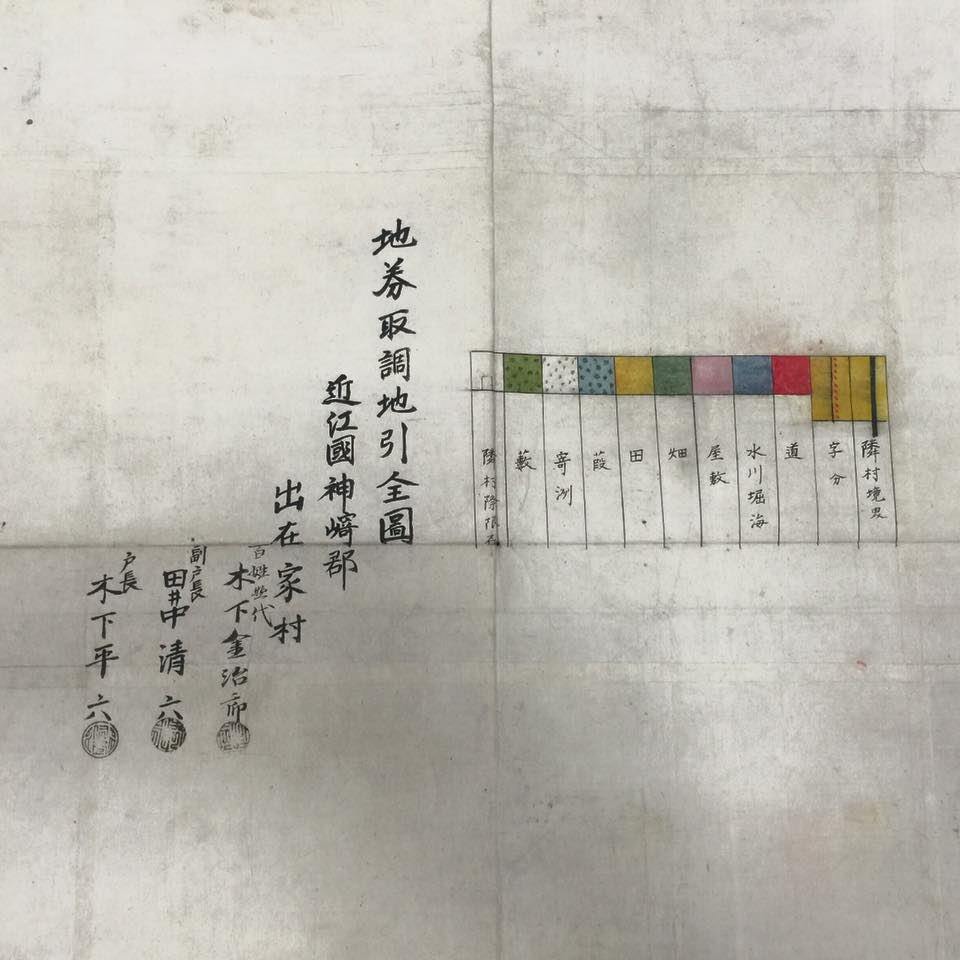 隣村境界
字分
道
水川堀海
屋敷
畑
田
葭
寄洲
藪
隣村際限石
地券取調地引全圖
近江國神嵜郡
出在家村
百姓惣代
木下金治郎
副戸長
田井中清六
戸長
木下平六